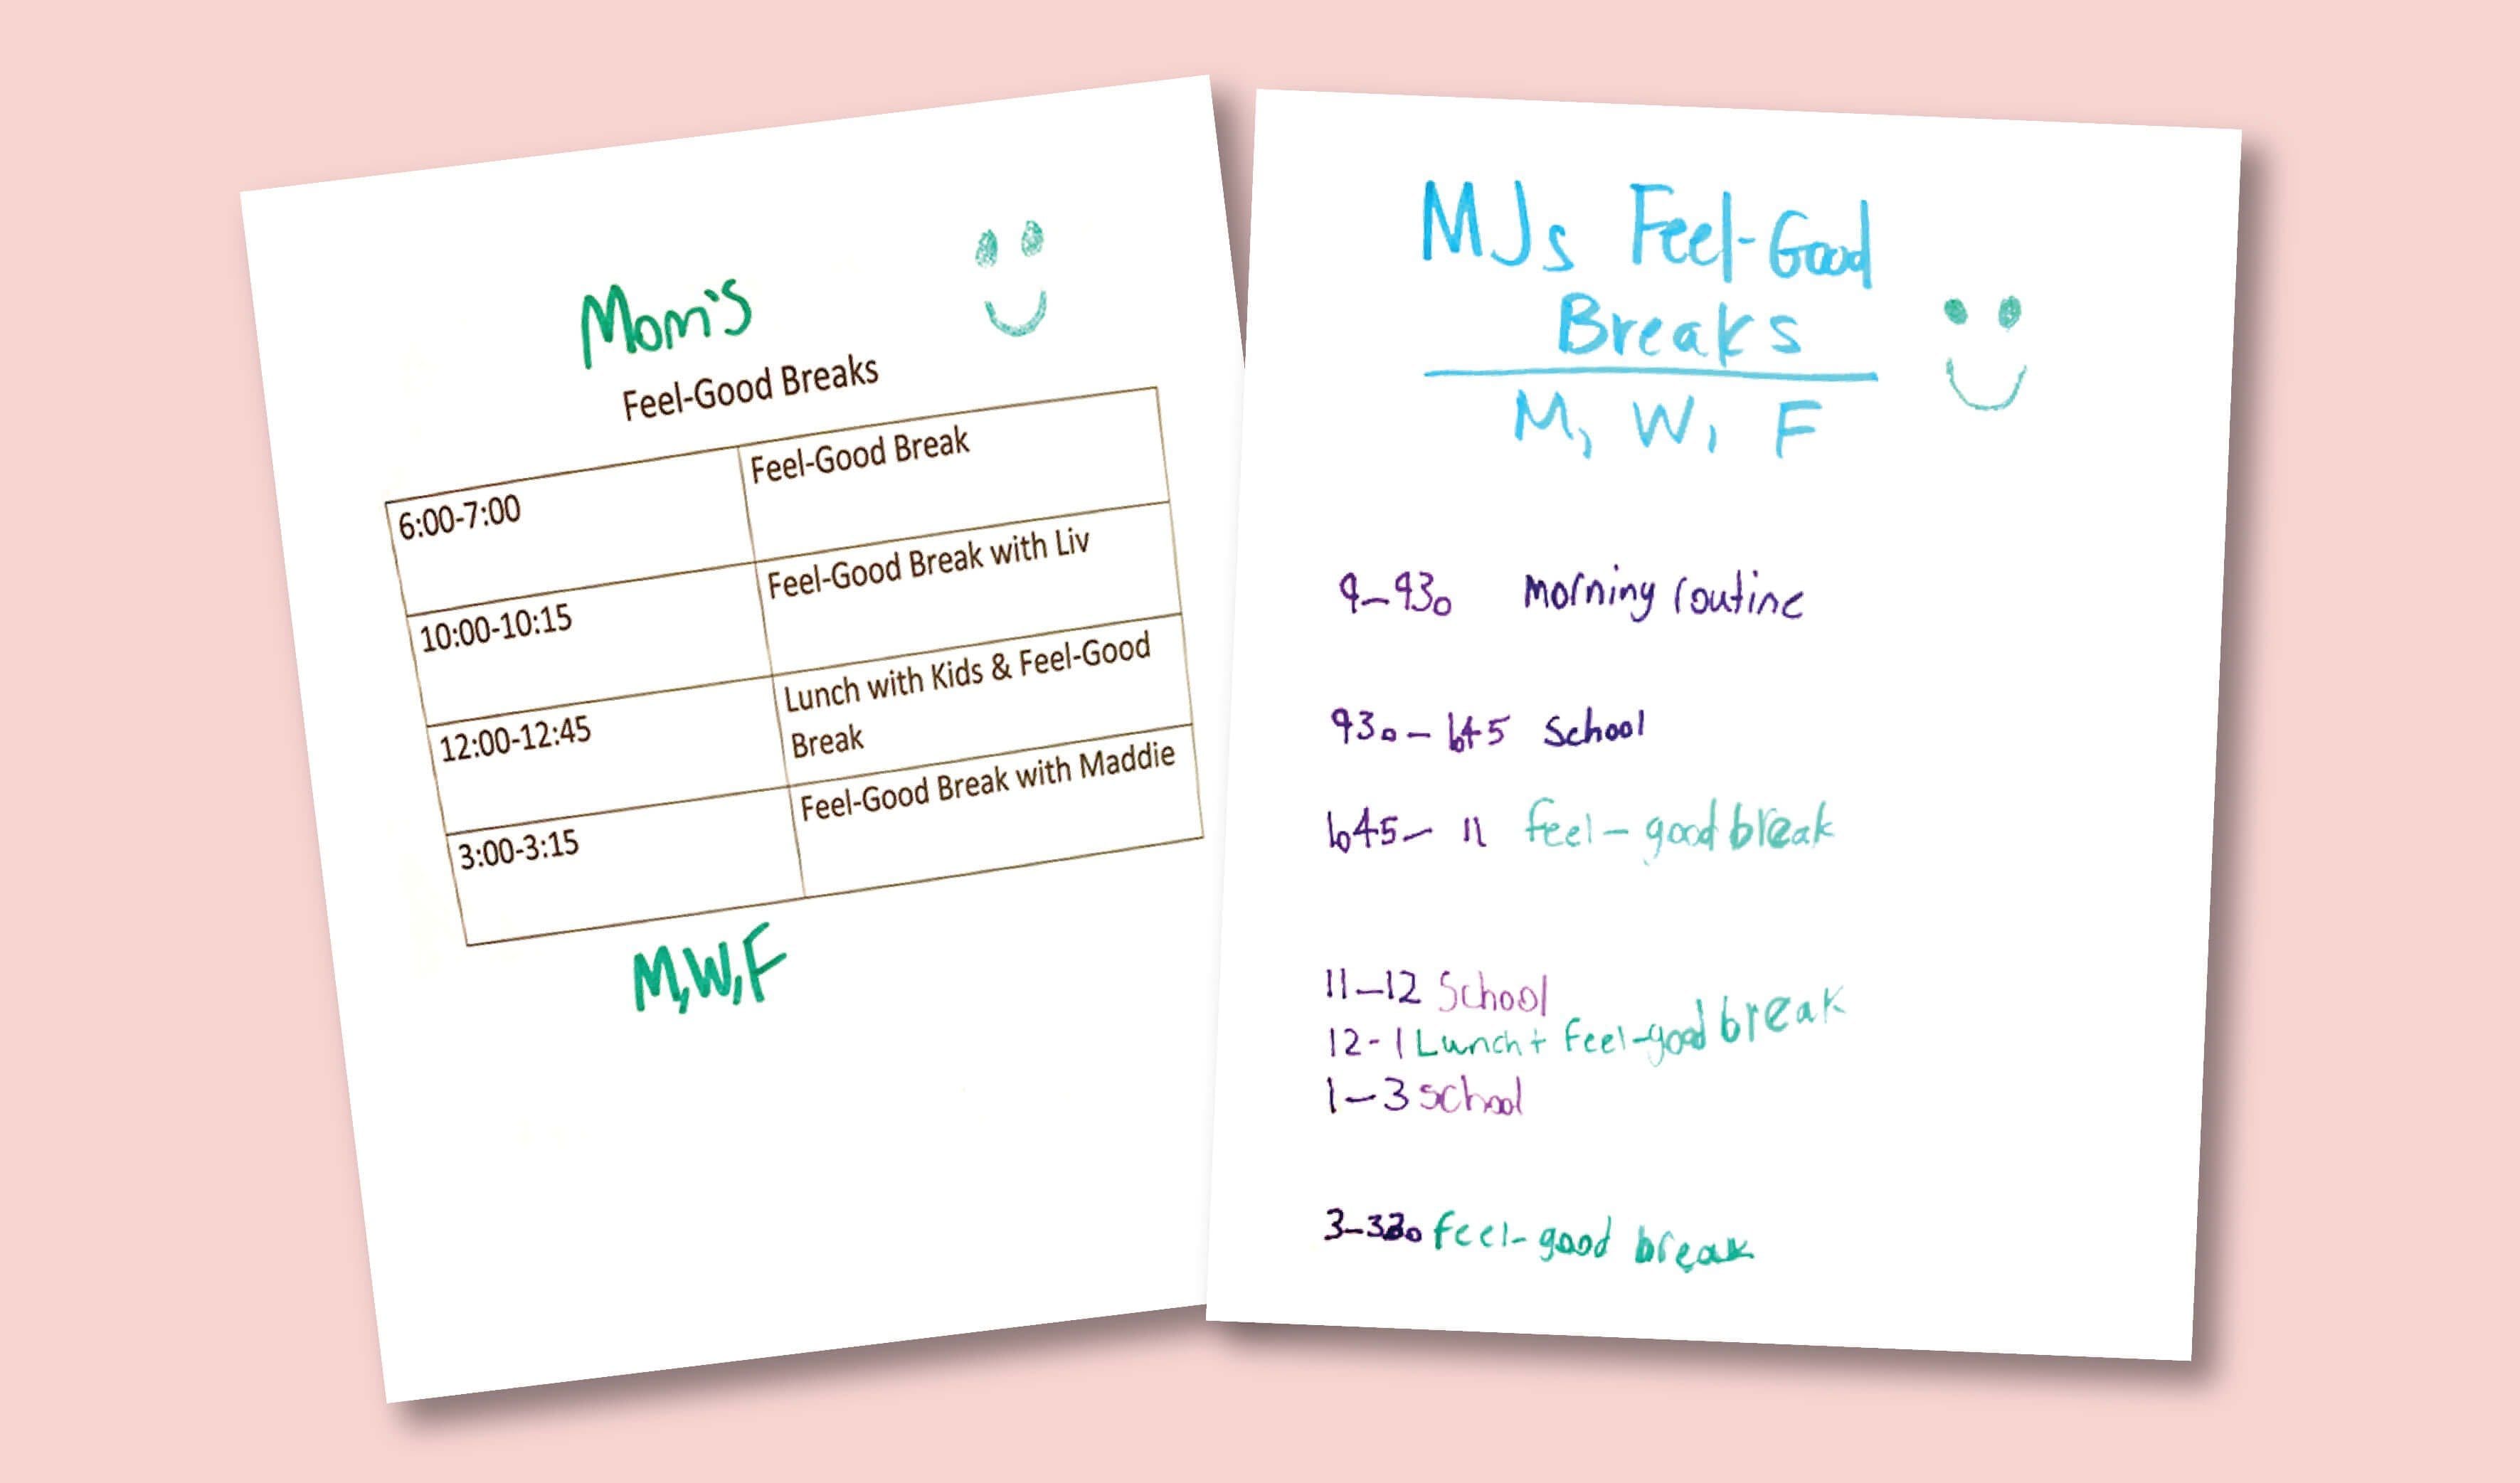 Mom's
Feel-Good Breaks
6:00-7:00 Feel-Good Break
10:00-10:15 Feel-Good Break with Liv
12:00-12:45 Lunch with Kids & Feel-Good
Break
3:00-3:15 Feel-Good Break with Maddie
M,W,F
MJs Feel-Good
Breaks
M, W, F
9-930 morning routine
930-1045 School
1045-11 feel-good break
11-12 School
12-1 Lunch + Feel-good break
1-3 school
3-330 feel-good break